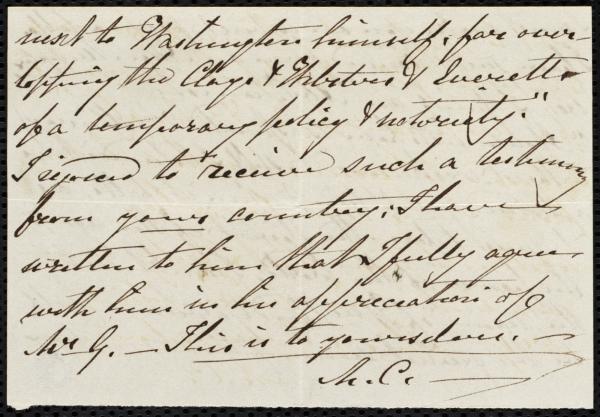 next to Washington himself, far over-
topping the Clays & Websters & Everetts
of a temporary policy & notoriety."
I rejoiced to receive such a testimony
from yours country; I have
written to him that I fully agree
with him in his appreciation of
Mr G. — This is to yourself dear. —
M. C. —